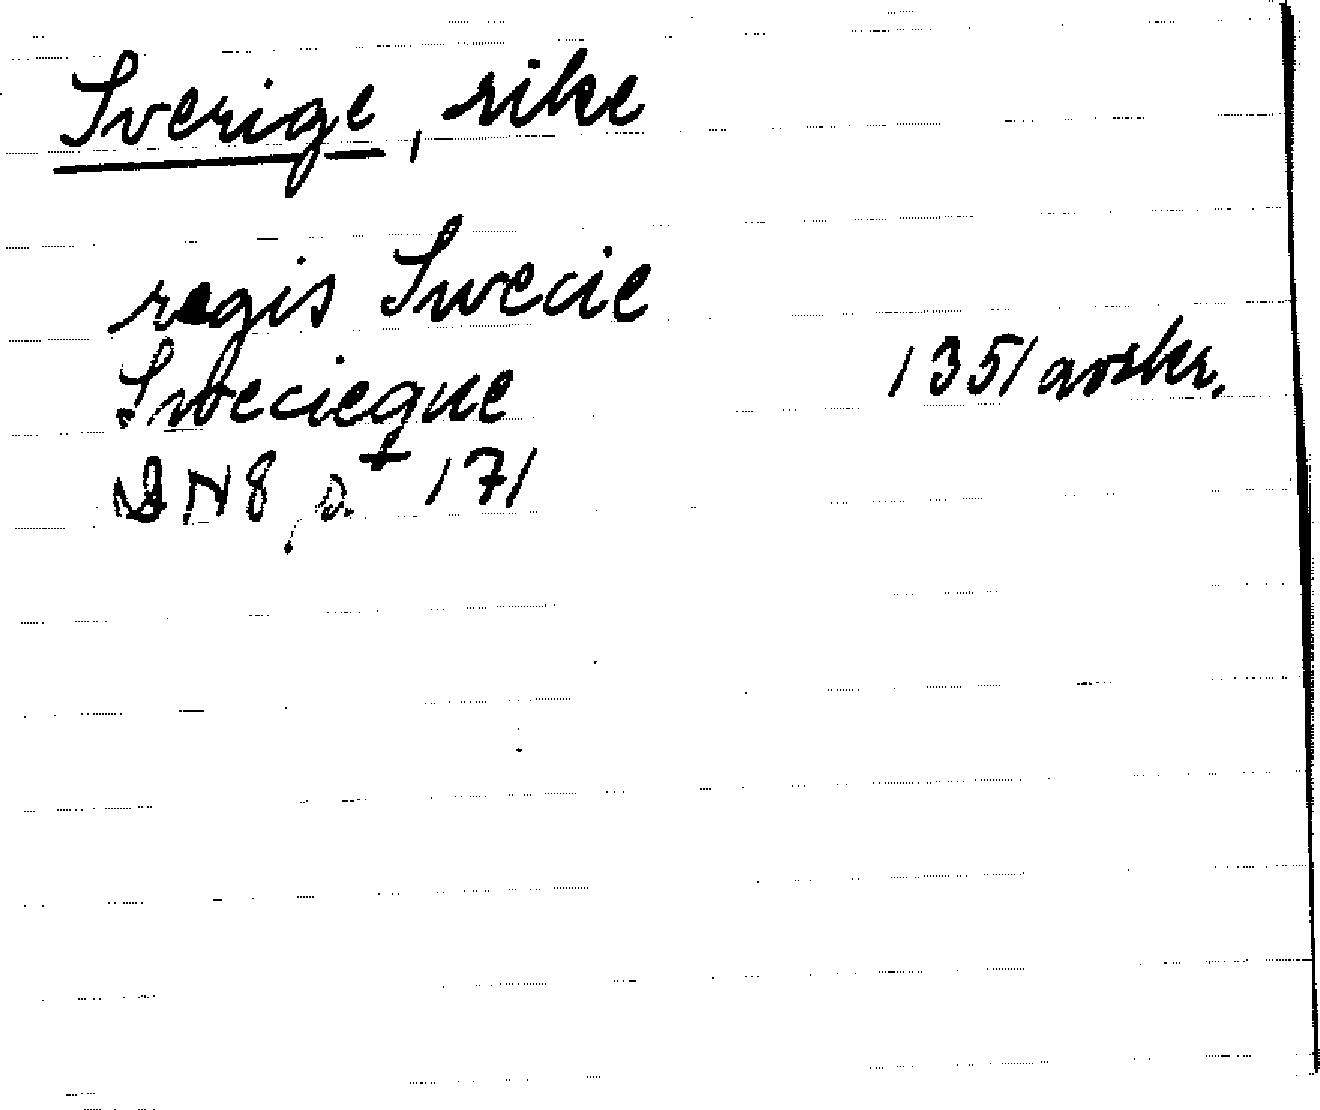 Sverige, rike
regis Swecie
Swecieque 1351 avskr.
DN8, s. 171